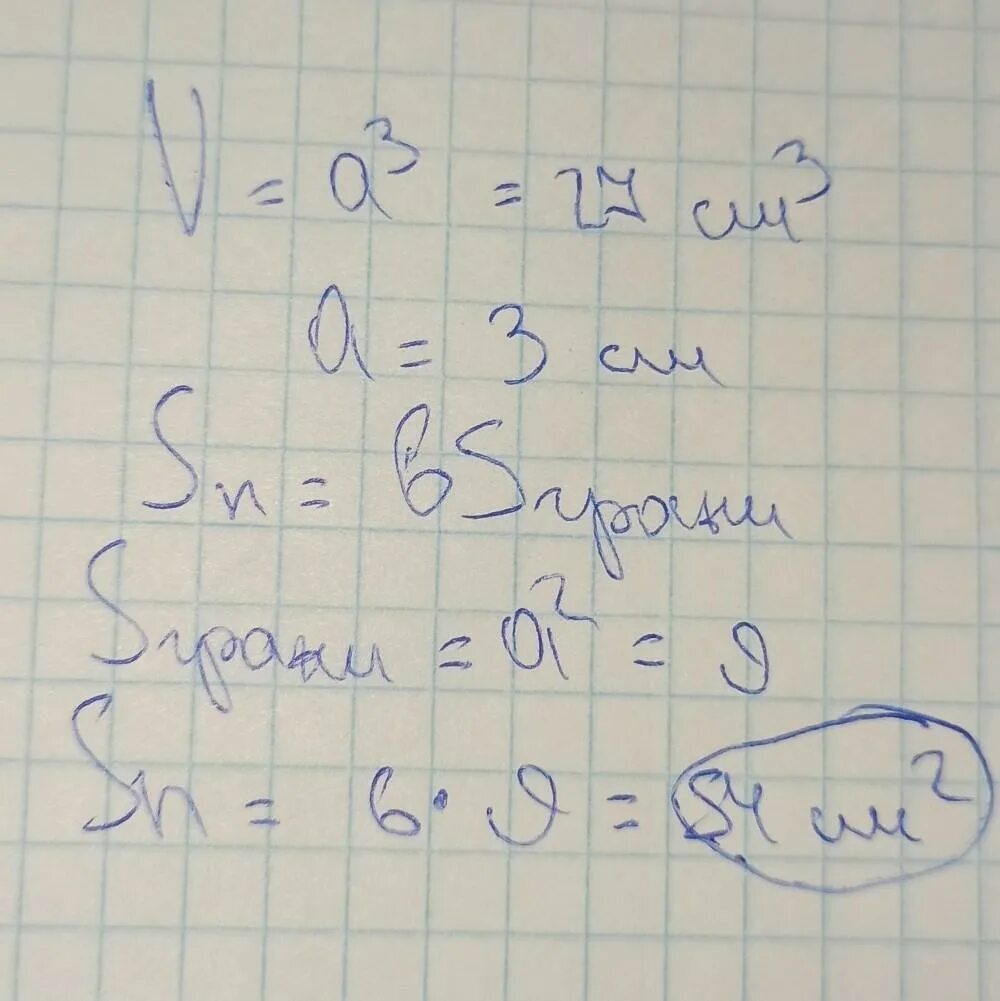 V = a³ = 27 см³
a = 3 см
Sп = 6Sграни
Sграни = a² = 9
Sп = 6 · 9 = 54 см²